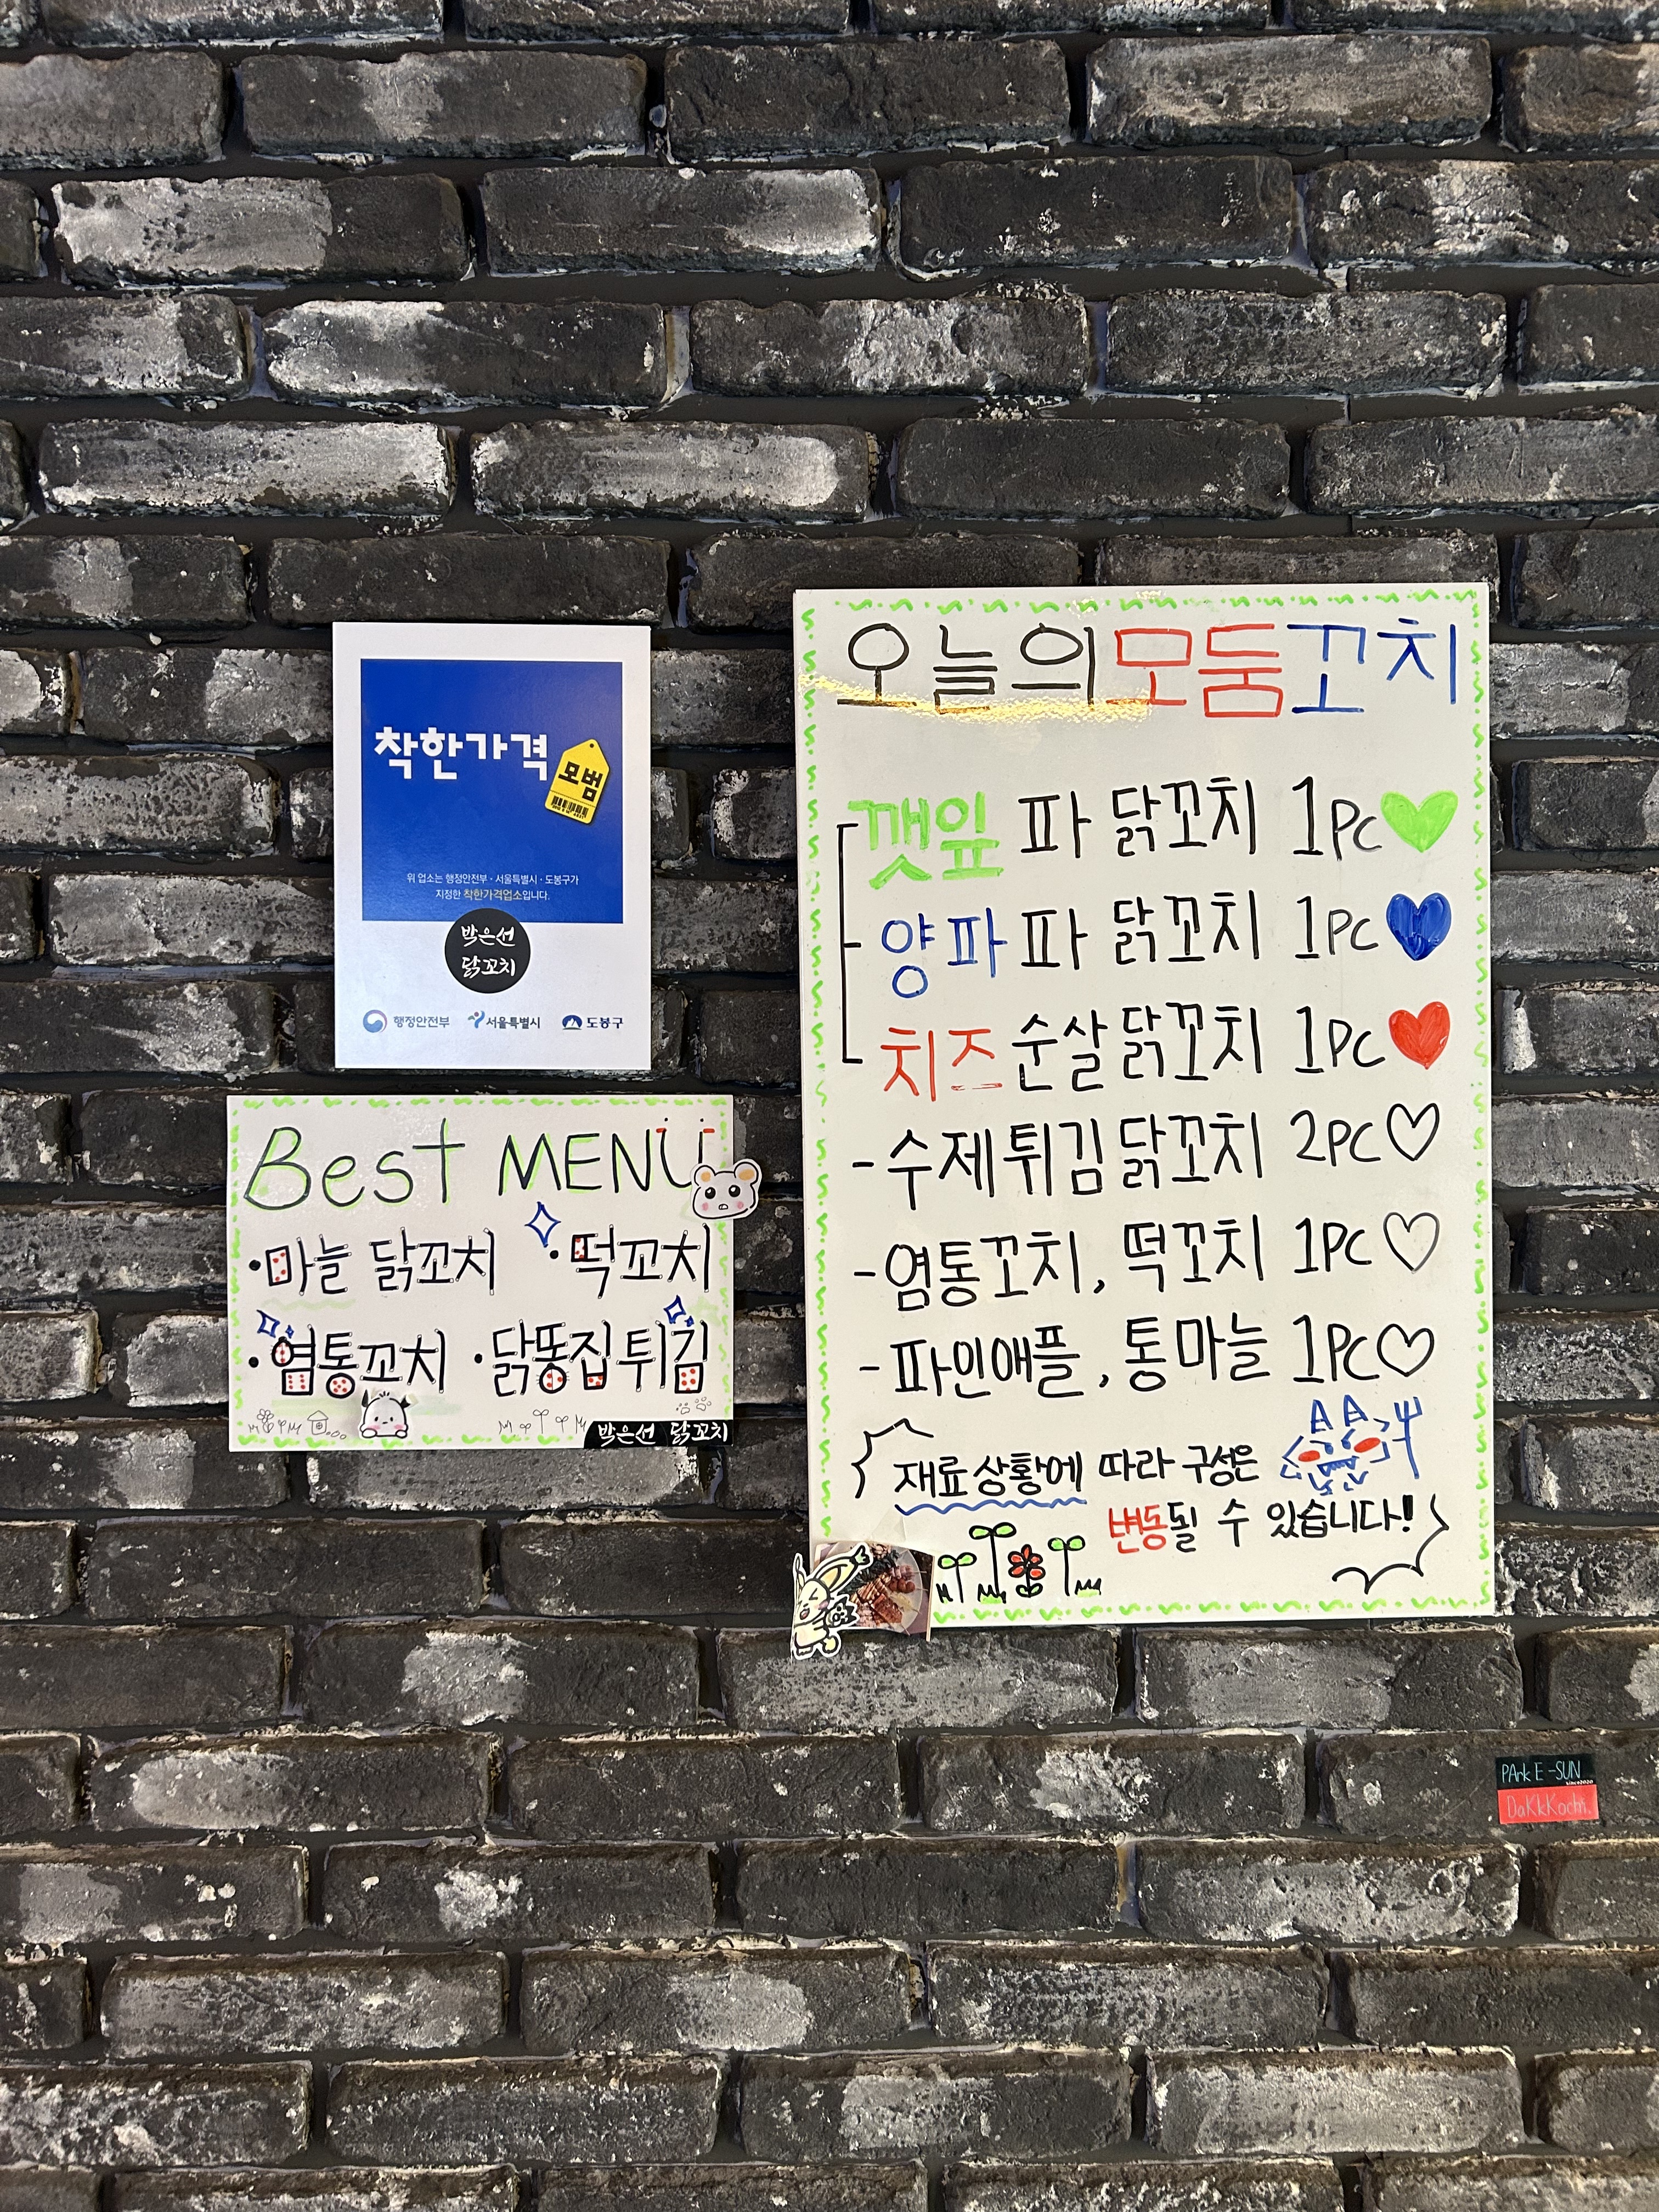 착한가격
모범
위 업소는 행정안전부 · 서울특별시 · 도봉구가
지정한 착한가격업소입니다.
박은선
닭꼬치
행정안전부 서울특별시 도봉구
Best MENU
·마늘 닭꼬치 ·떡꼬치
·염통꼬치 ·닭똥집튀김
박은선 닭꼬치
오늘의모둠꼬치
깻잎 파 닭꼬치 1Pc
양파 파 닭꼬치 1PC
치즈 순살닭꼬치 1PC
-수제튀김닭꼬치 2PC
-염통꼬치, 떡꼬치 1PC
-파인애플, 통마늘 1PC
재료상황에 따라 구성은
변동될 수 있습니다!
PArk E-SUN
since2020
DaKkKochi.